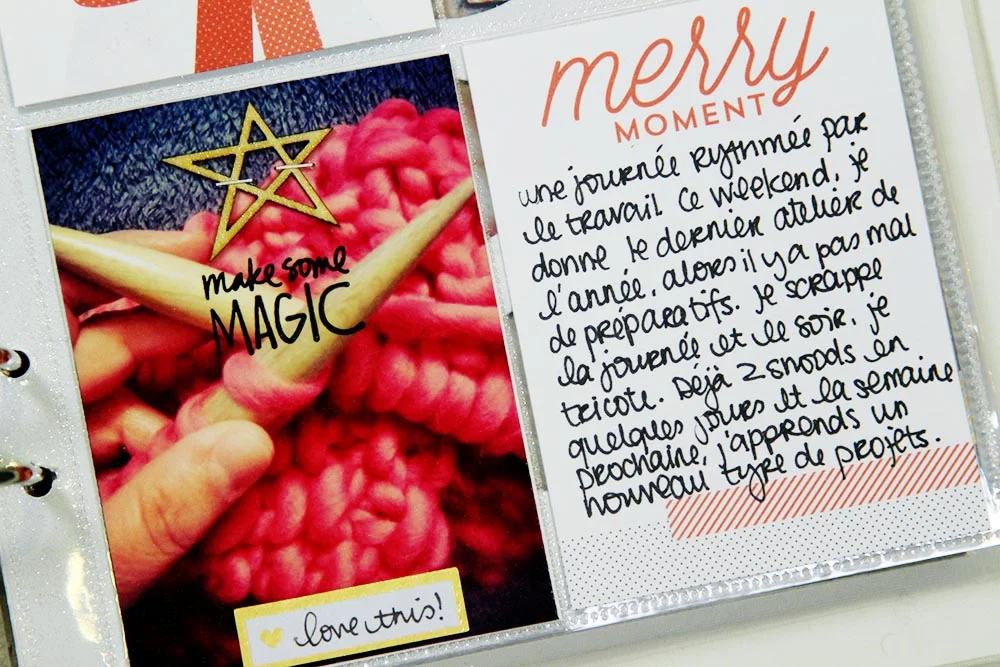 make some
MAGIC
love this!
merry
MOMENT
une journée rythmée par
le travail. Ce weekend, je
donne le dernier atelier de
l'année, alors il y a pas mal
de préparatifs. Je scrappe
la journée et le soir, je
tricote. Déjà 2 snoods en
quelques jours et la semaine
prochaine, j'apprends un
nouveau type de projets.